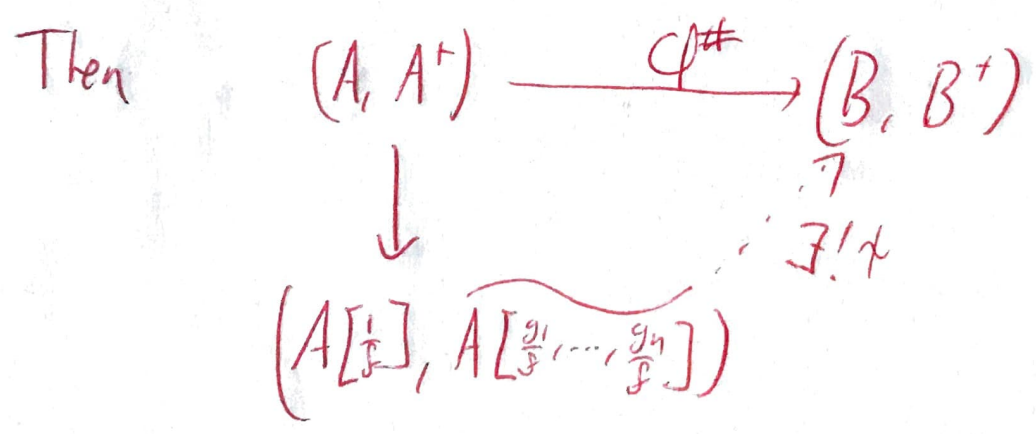 Then (A, A⁺) φ^# (B, B⁺)
∃! ψ
(A[1/f], A[g₁/f, ..., gₙ/f]~)